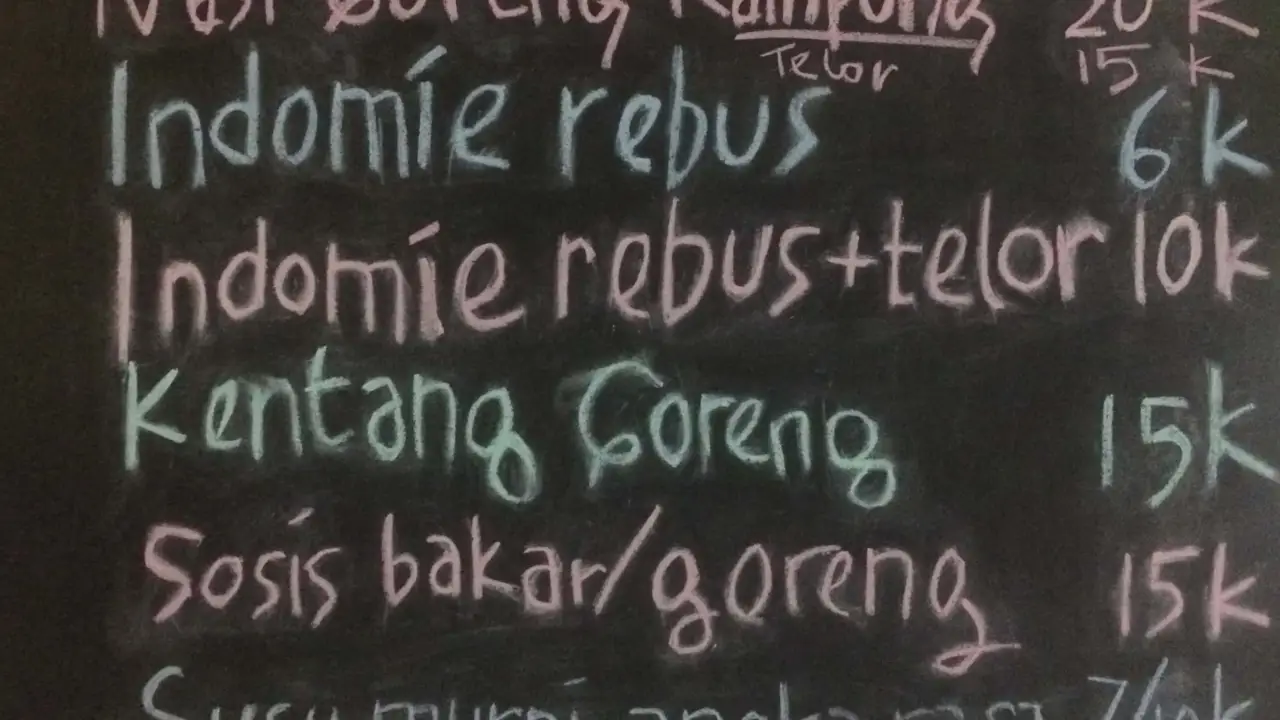 Nasi Goreng Kampung 20 k
Telor 15 k
Indomie rebus 6k
Indomie rebus+telor 10k
Kentang Goreng 15k
Sosis bakar/goreng 15k
Susu murni aneka rasa 7/10k